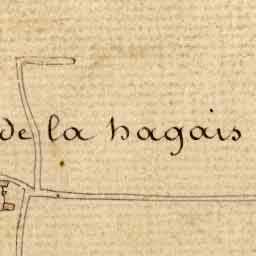 de la hagais